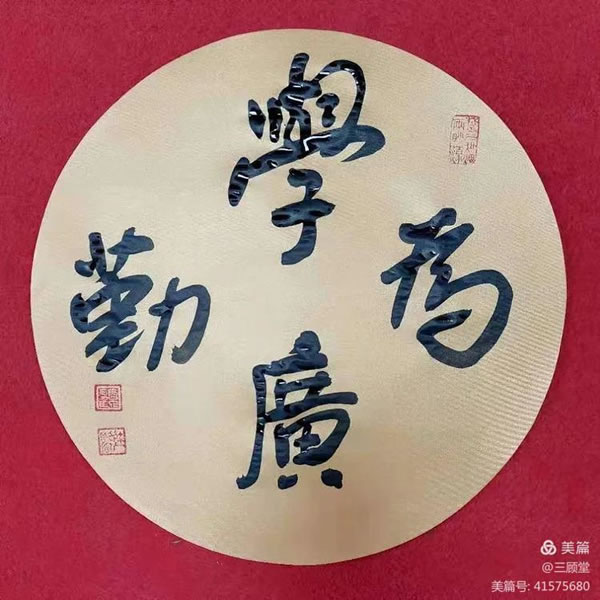 學
廣
為
勤
美篇
@三顾堂
美篇号: 41575680